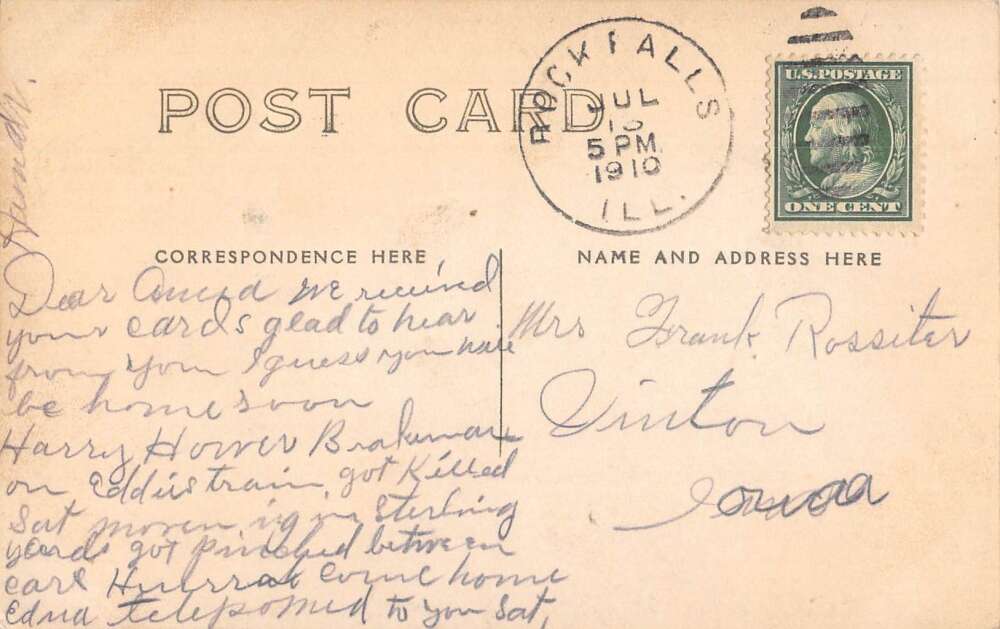 POST CARD
ROCK FALLS
JUL
5 PM
1910
ILL.
U.S. POSTAGE
ONE CENT
CORRESPONDENCE HERE
NAME AND ADDRESS HERE
Dear we received
your cards glad to hear
from you I guess you will
be home soon
Harry Hower Brakeman
on Eddies train, got Killed
Sat moren ing in Sterling
yards got pinched between
cars Hurrah come home
Edna telepomed to you Sat,
Mrs Frank Rossiter
Vinton
Iowa